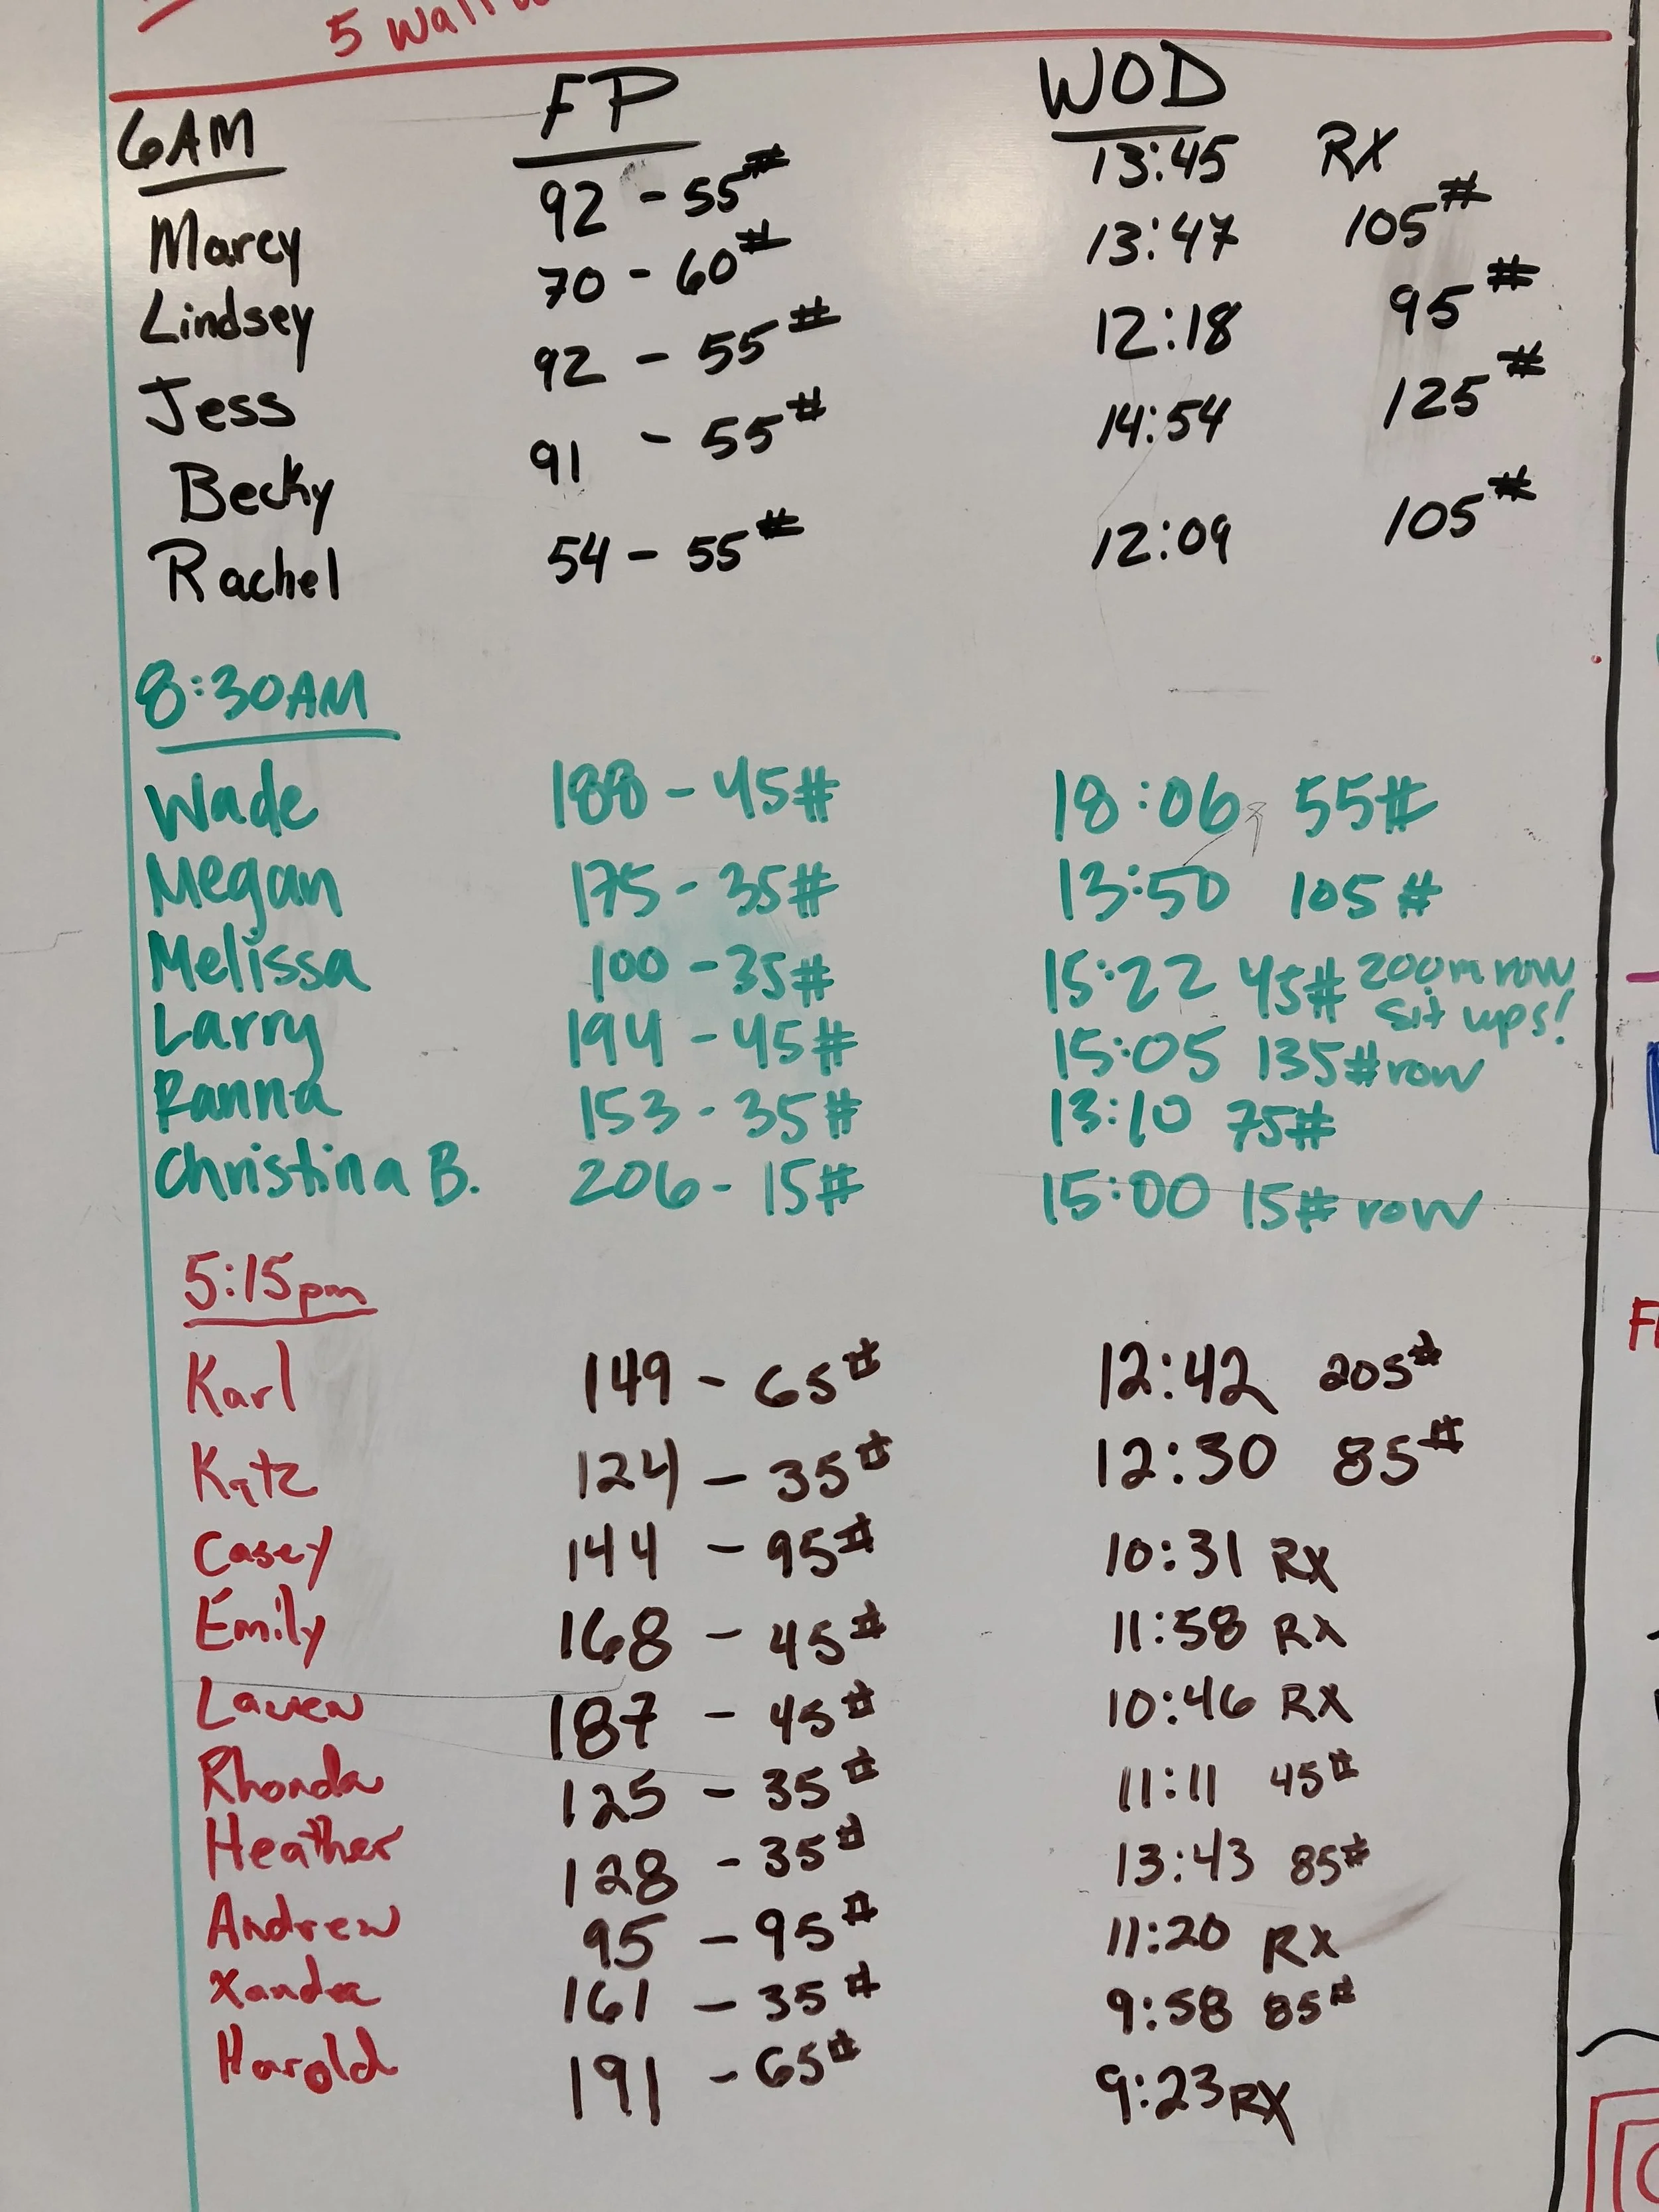 5 wall
6AM FP WOD
Marcy 92 - 55# 13:45 RX
Lindsey 70 - 60# 13:47 105#
Jess 92 - 55# 12:18 95#
Becky 91 - 55# 14:54 125#
Rachel 54 - 55# 12:09 105#
8:30AM
Wade 188 - 45# 18:06 55#
Megan 175 - 35# 13:50 105#
Melissa 100 - 35# 15:22 45# 200m row
sit ups!
Larry 194 - 45# 15:05 135# row
Ranna 153 - 35# 13:10 75#
Christina B. 206 - 15# 15:00 15# row
5:15pm
Karl 149 - 65# 12:42 205#
Katz 124 - 35# 12:30 85#
Casey 144 - 95# 10:31 RX
Emily 168 - 45# 11:58 RX
Lauren 187 - 45# 10:46 RX
Rhonda 125 - 35# 11:11 45#
Heather 128 - 35# 13:43 85#
Andrew 95 - 95# 11:20 RX
Xandra 161 - 35# 9:58 85#
Harold 191 - 65# 9:23 RX